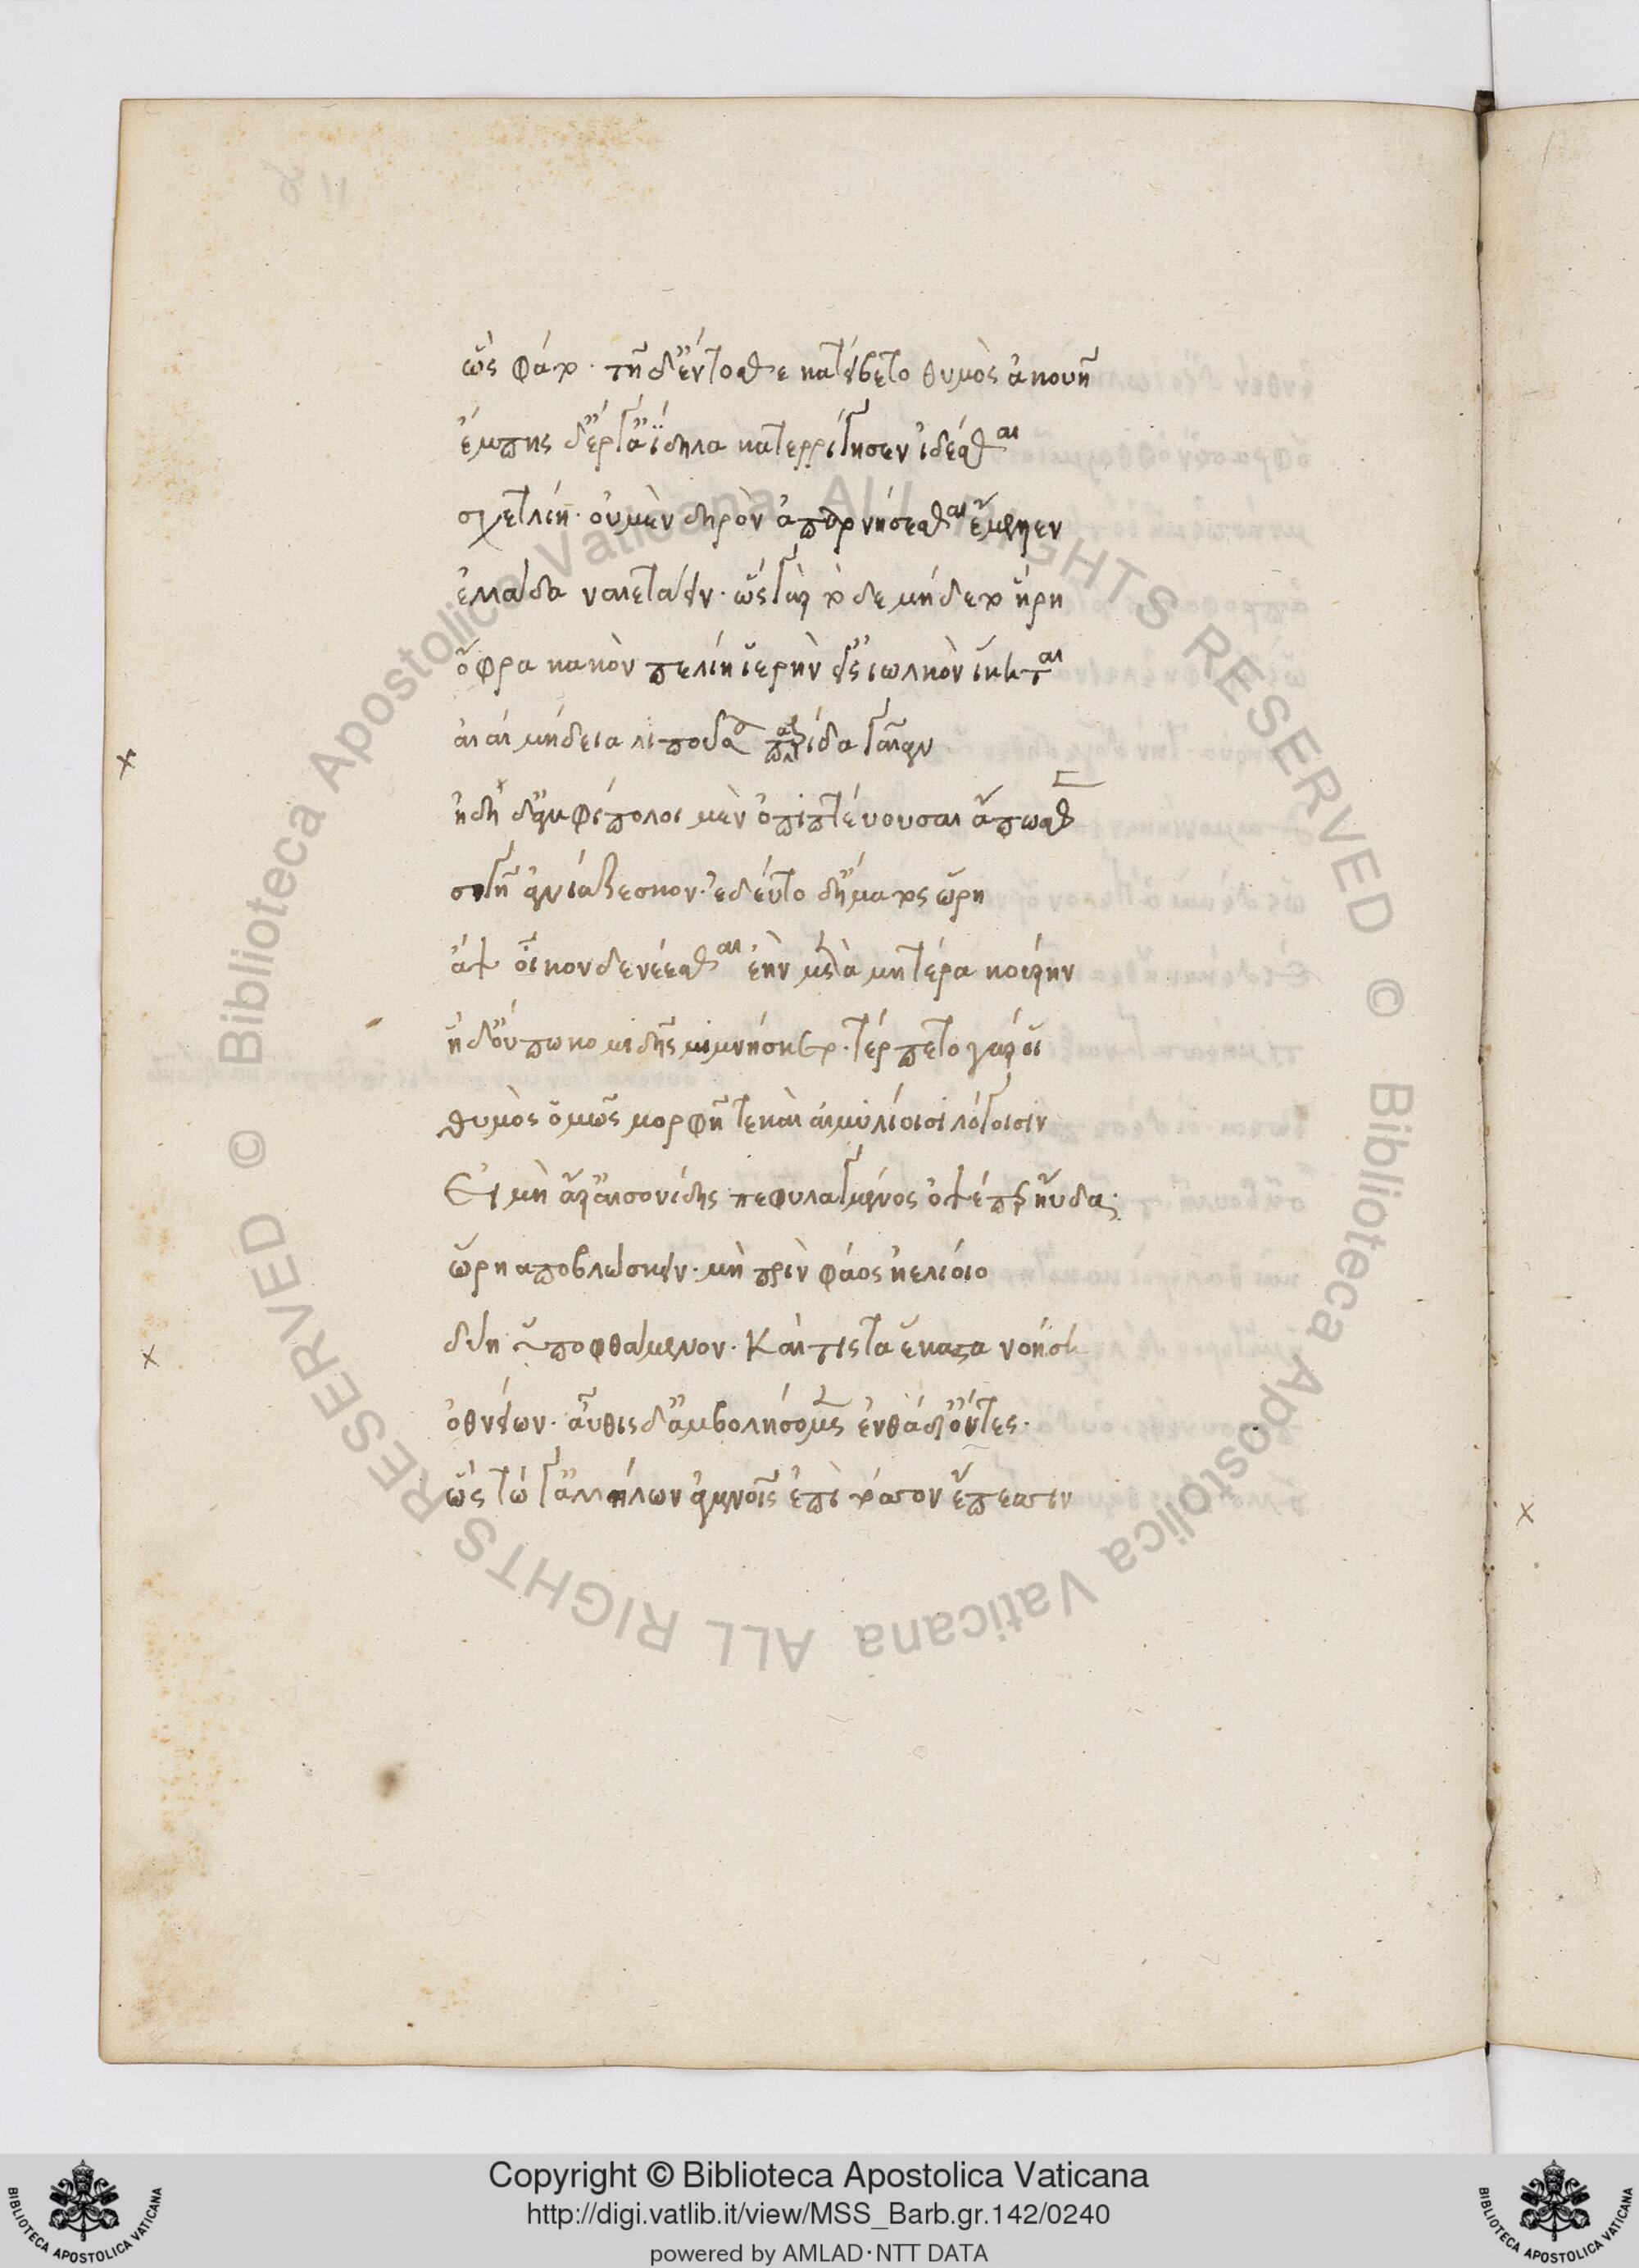 ὣς φάτο· τῇ δ' ἔντοσθε κατείβετο θυμὸς ἀκουῇ
ἔμπης δ' ἔργ' ἀΐδηλα κατερρίγησεν ἰδέσθαι
σχετλίη· οὐ μὲν δηρὸν ἀπαρνήσεσθαι ἔμελλεν
ἑλλάδα ναιετάειν· ὣς γὰρ τόδε μήδετο ἥρη
ὄφρα κακὸν πελίῃ ἱερὴν εἰς ἰωλκὸν ἵκηται
αἰαίη μήδεια λιποῦσα πατρίδα γαῖαν
ἤδη δ' ἀμφίπολοι μὲν ὀπιπτεύουσαι ἄπωθεν
σιγῇ ἀνιάζεσκον· ἐδεύετο δ' ἤματος ὥρη
ἂψ οἶκον δε νέεσθαι ἑὴν μετὰ μητέρα κούρην
ἡ δ' οὔπω κομιδῆς μιμνήσκετο· τέρπετο γάρ οἱ
θυμὸς ὁμῶς μορφῇ τε καὶ αἱμυλίοισι λόγοισιν
Εἰ μὴ ἄρ' αἰσονίδης πεφυλαγμένος ὀψέ περ ηὔδα·
ὥρη ἀποβλώσκειν· μὴ πρὶν φάος ἠελίοιο
δύῃ ὑποφθάμενον· Καί τις τὰ ἕκαστα νοήσῃ
ὀθνείων· αὖθις δ' ἀμβολήσομεν ἐνθάδ' ἰόντες·
ὣς τώ γ' ἀλλήλων ἀγανοῖς ἐπὶ τόσσον ἔπεσσιν
Copyright © Biblioteca Apostolica Vaticana
http://digi.vatlib.it/view/MSS_Barb.gr.142/0240
powered by AMLAD·NTT DATA